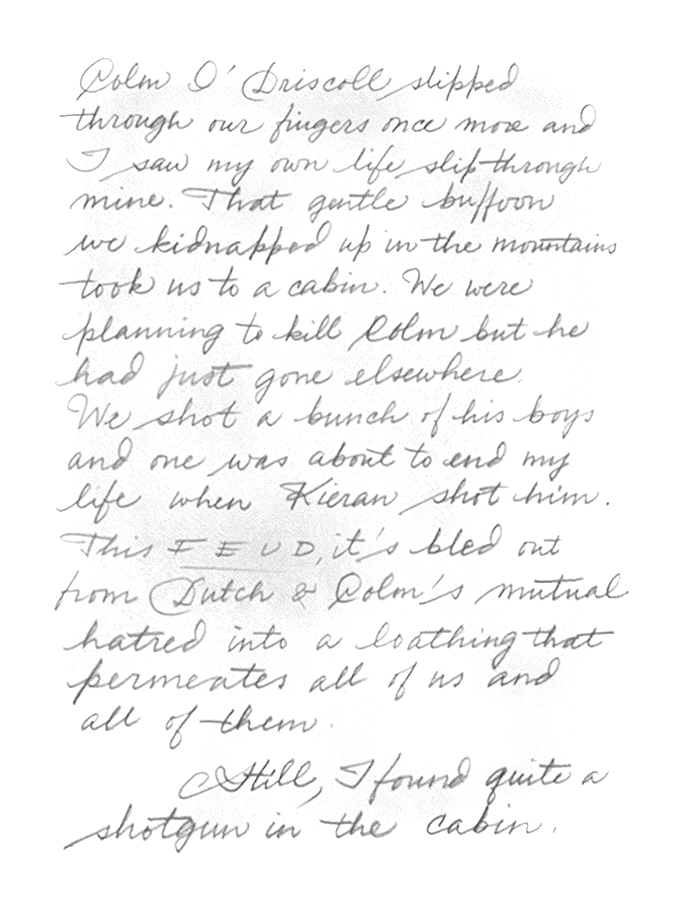 Colm O'Driscoll slipped
through our fingers once more and
I saw my own life slip through
mine. That gentle buffoon
we kidnapped up in the mountains
took us to a cabin. We were
planning to kill Colm but he
had just gone elsewhere.
We shot a bunch of his boys
and one was about to end my
life when Kieran shot him.
This FEUD, it's bled out
from Dutch & Colm's mutual
hatred into a loathing that
permeates all of us and
all of them.
Still, I found quite a
shotgun in the cabin.